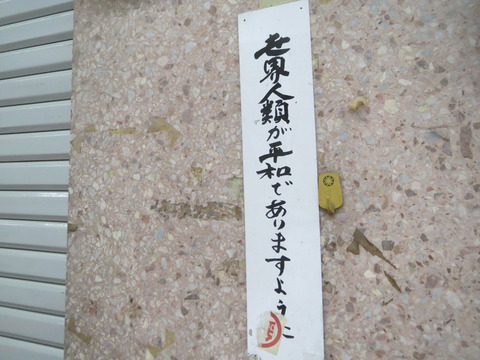 世界人類が平和でありますように